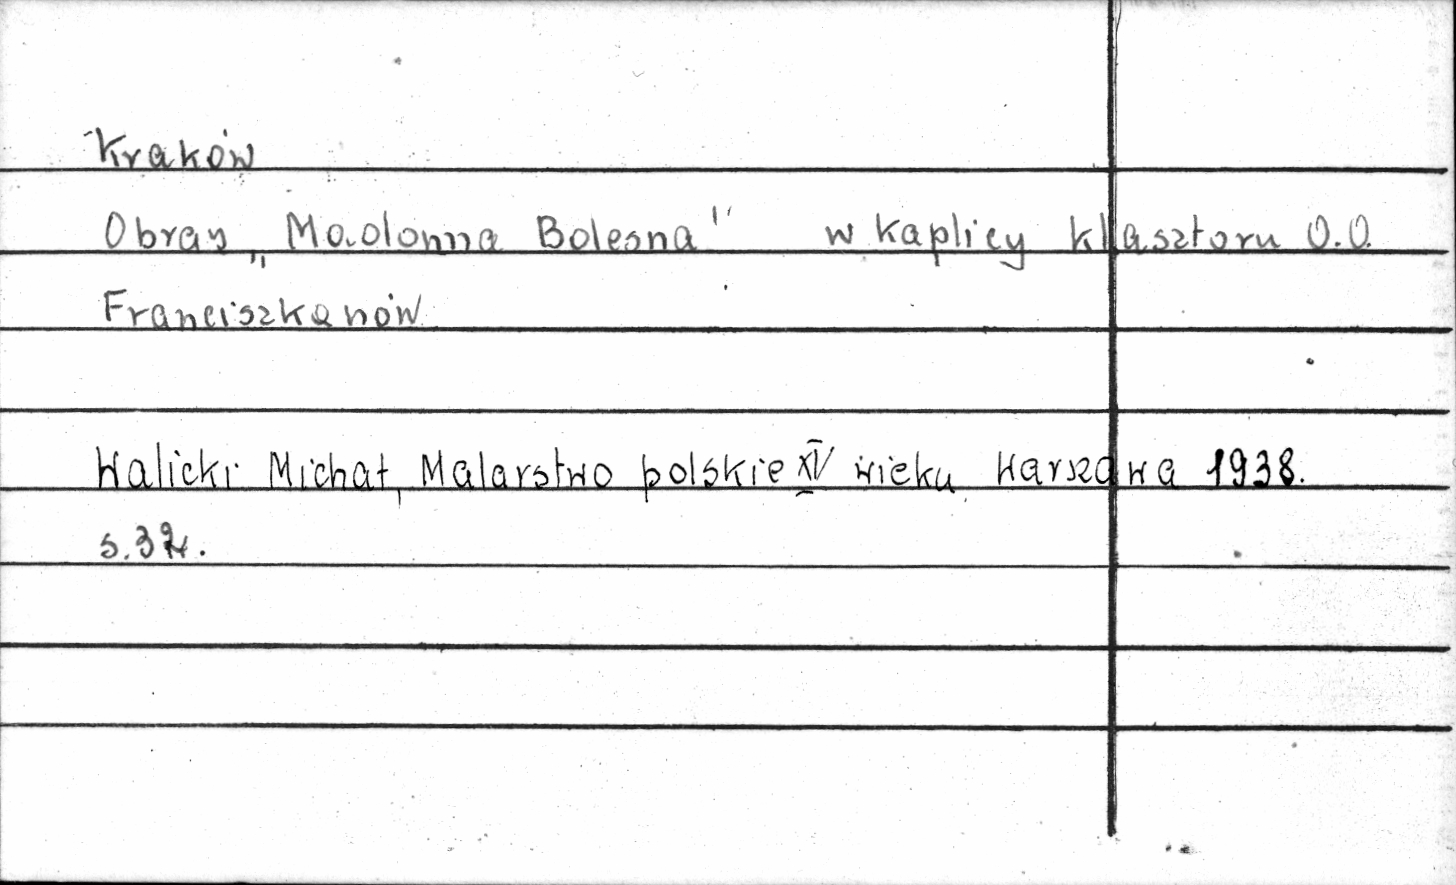 Kraków
Obraz „Madonna Bolesna" w kaplicy klasztoru O.O.
Franciszkanów
Walicki Michał, Malarstwo polskie XV wieku, Warszawa 1938.